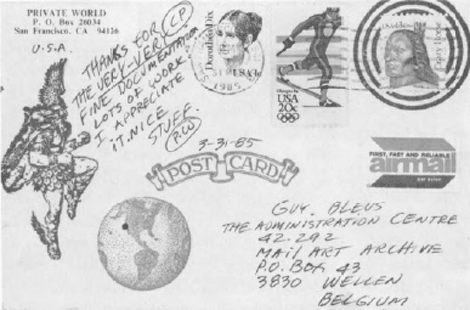 PRIVATE WORLD
P. O. Box 26034
San Francisco, CA 94126
U.S.A.
THANKS FOR CP
THE VERY-VERY
FINE DOCUMENTATION
LOTS OF WORK
I APPRECIATE
IT. NICE
STUFF.
P.W
3-31-85
Dorothea Dix
USA 1c
1985
USA
20c
Crazy Horse
POST CARD
FIRST, FAST AND RELIABLE
airmail
par avion
GUY. BLEUS
THE ADMINISTRATION CENTRE
42.292
MAIL ART ARCHIVE
P.O. BOX 43
3830 WELLEN
BELGIUM